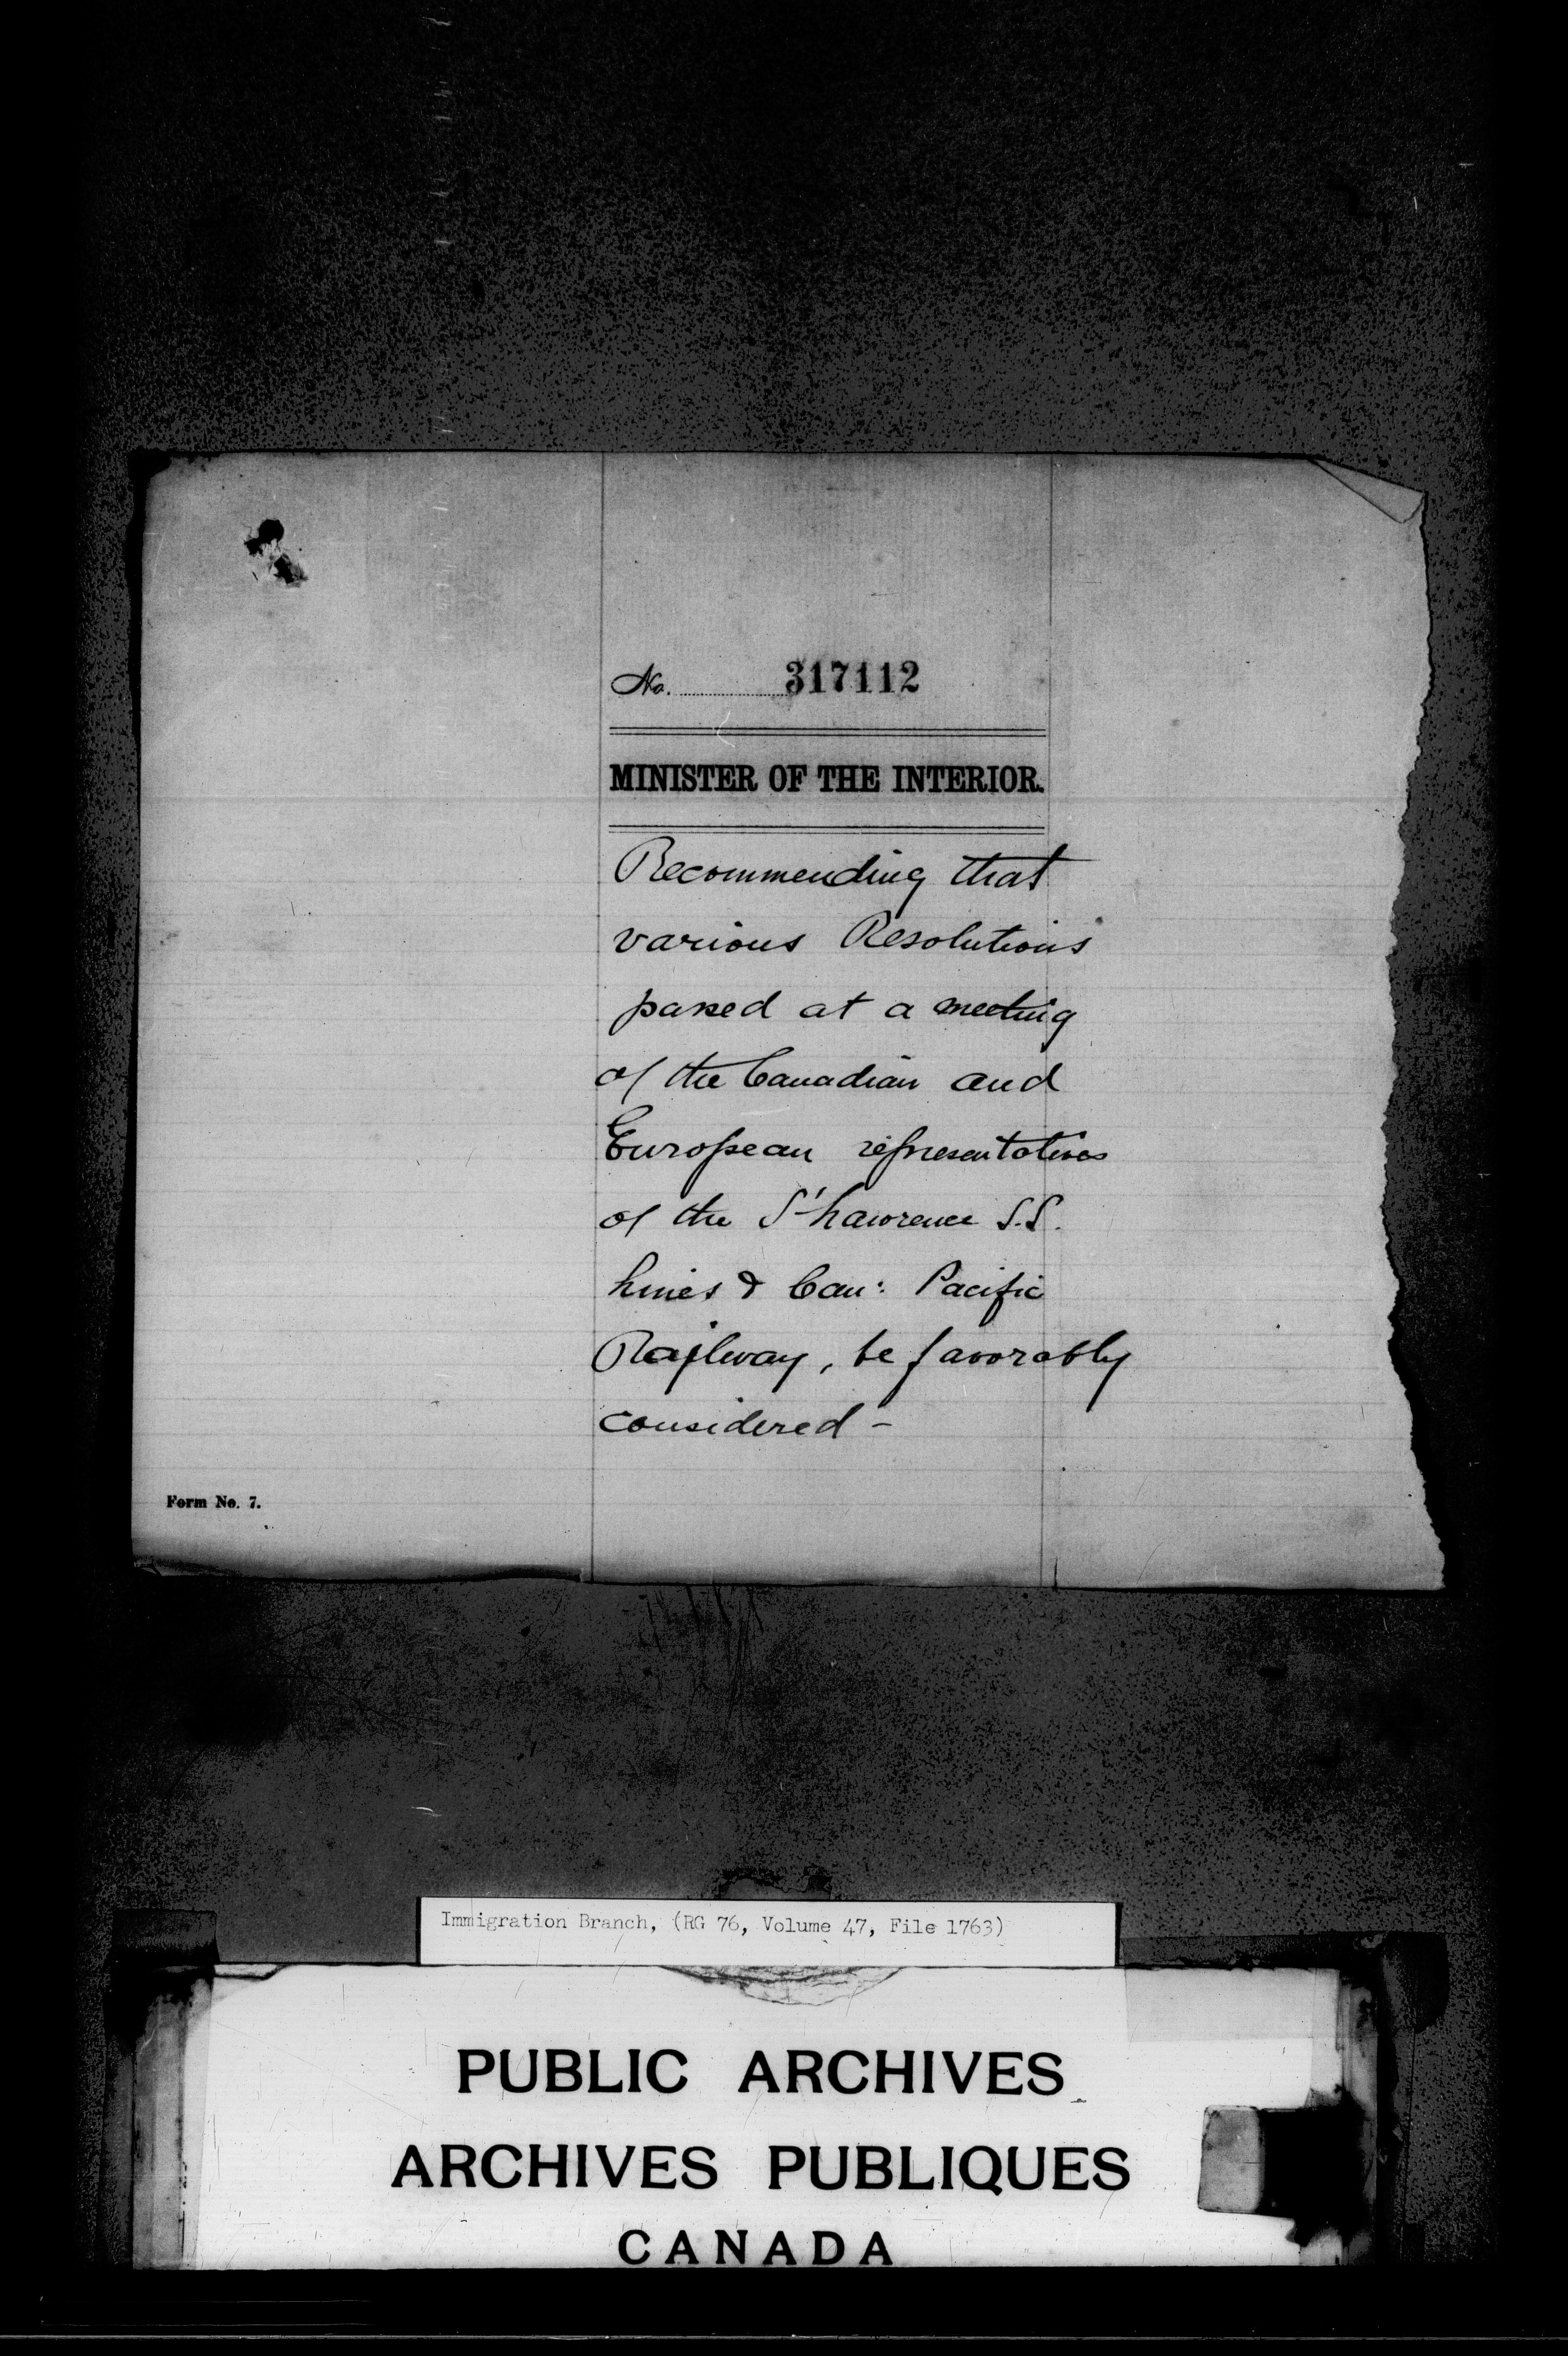 No. 317112
MINISTER OF THE INTERIOR.
Recommending that
various Resolutions
passed at a meeting
of the Canadian and
European representatives
of the St Lawrence S.S.
Lines & Can: Pacific
Railway, be favorably
considered -
Form No. 7.
Immigration Branch, (RG 76, Volume 47, File 1763)
PUBLIC ARCHIVES
ARCHIVES PUBLIQUES
CANADA